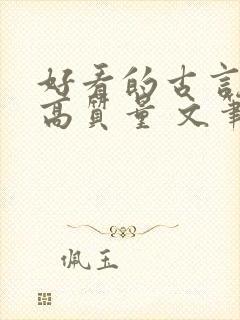 好看的古言
高质量 文笔
佩玉